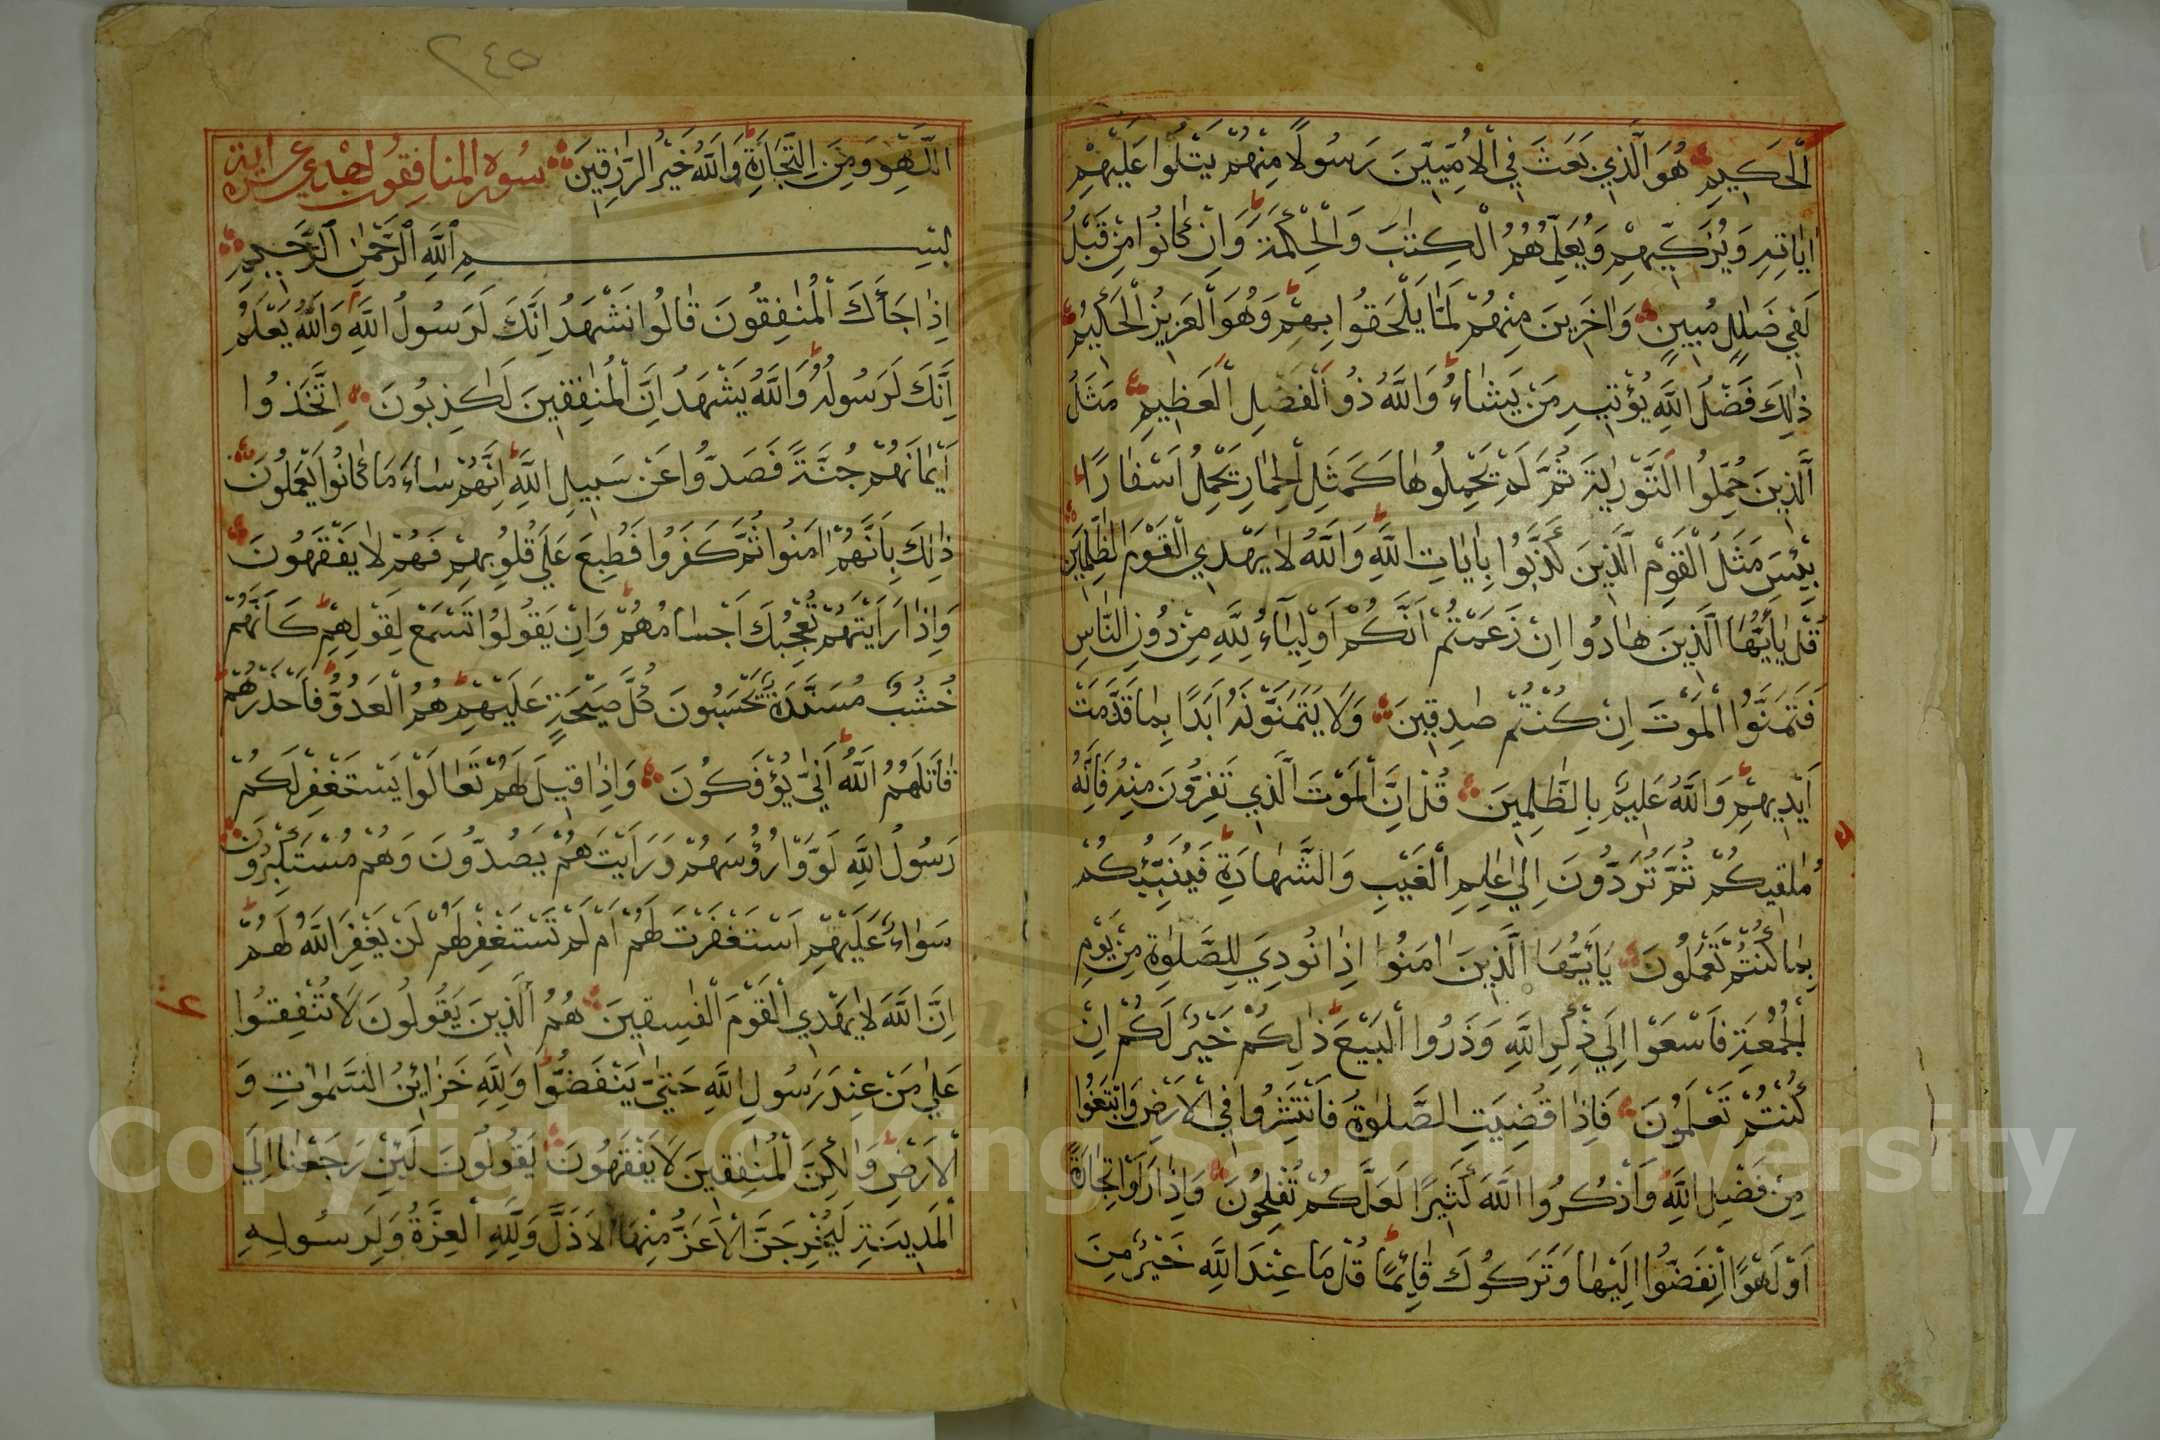 اَلْحَكِيمِ هُوَ الَّذِي بَعَثَ فِي الْاُمِّيّينَ رَسُولًا مِنْهُمْ يَتْلُوا عَلَيْهِمْ
اٰيَاتِهِ وَيُزَكِّيهِمْ وَيُعَلِّمُهُمُ الْكِتٰبَ وَالْحِكْمَةَ وَاِنْ كَانُوا مِنْ قَبْلُ
لَفِي ضَلٰلٍ مُبِينٍ وَاٰخَرِينَ مِنْهُمْ لَمَّا يَلْحَقُوا بِهِمْ وَهُوَ الْعَزِيزُ الْحَكِيمُ
ذٰلِكَ فَضْلُ اللّٰهِ يُؤْتِيهِ مَنْ يَشَاءُ وَاللّٰهُ ذُو الْفَضْلِ الْعَظِيمِ مَثَلُ
الَّذِينَ حُمِّلُوا التَّوْرٰيةَ ثُمَّ لَمْ يَحْمِلُوهَا كَمَثَلِ الْحِمَارِ يَحْمِلُ اَسْفَارًا
بِئْسَ مَثَلُ الْقَوْمِ الَّذِينَ كَذَّبُوا بِاٰيَاتِ اللّٰهِ وَاللّٰهُ لَا يَهْدِي الْقَوْمَ الظّٰلِمِينَ
قُلْ يَا اَيُّهَا الَّذِينَ هَادُوا اِنْ زَعَمْتُمْ اَنَّكُمْ اَوْلِيَاءُ لِلّٰهِ مِنْ دُونِ النَّاسِ
فَتَمَنَّوُا الْمَوْتَ اِنْ كُنْتُمْ صٰدِقِينَ وَلَا يَتَمَنَّوْنَهُ اَبَدًا بِمَا قَدَّمَتْ
اَيْدِيهِمْ وَاللّٰهُ عَلِيمٌ بِالظّٰلِمِينَ قُلْ اِنَّ الْمَوْتَ الَّذِي تَفِرُّونَ مِنْهُ فَاِنَّهُ
مُلٰقِيكُمْ ثُمَّ تُرَدُّونَ اِلٰي عٰلِمِ الْغَيْبِ وَالشَّهَادَةِ فَيُنَبِّئُكُمْ
بِمَا كُنْتُمْ تَعْمَلُونَ يَا اَيُّهَا الَّذِينَ اٰمَنُوا اِذَا نُودِيَ لِلصَّلٰوةِ مِنْ يَوْمِ
الْجُمُعَةِ فَاسْعَوْا اِلَي ذِكْرِ اللّٰهِ وَذَرُوا الْبَيْعَ ذٰلِكُمْ خَيْرٌ لَكُمْ اِنْ
كُنْتُمْ تَعْلَمُونَ فَاِذَا قُضِيَتِ الصَّلٰوةُ فَانْتَشِرُوا فِي الْاَرْضِ وَابْتَغُوا
مِنْ فَضْلِ اللّٰهِ وَاذْكُرُوا اللّٰهَ كَثِيرًا لَعَلَّكُمْ تُفْلِحُونَ وَاِذَا رَاَوْا تِجَارَةً
اَوْ لَهْوًا انْفَضُّوا اِلَيْهَا وَتَرَكُوكَ قَائِمًا قُلْ مَا عِنْدَ اللّٰهِ خَيْرٌ مِنَ
٢٤٥
اللَّهْوِ وَمِنَ التِّجَارَةِ وَاللّٰهُ خَيْرُ الرّٰزِقِينَ سورة المنافقون احدي عشر اية
بِسْمِ اللّٰهِ الرَّحْمٰنِ الرَّحِيمِ
اِذَا جَاءَكَ الْمُنٰفِقُونَ قَالُوا نَشْهَدُ اِنَّكَ لَرَسُولُ اللّٰهِ وَاللّٰهُ يَعْلَمُ
اِنَّكَ لَرَسُولُهُ وَاللّٰهُ يَشْهَدُ اِنَّ الْمُنٰفِقِينَ لَكٰذِبُونَ اِتَّخَذُوا
اَيْمَانَهُمْ جُنَّةً فَصَدُّوا عَنْ سَبِيلِ اللّٰهِ اِنَّهُمْ سَاءَ مَا كَانُوا يَعْمَلُونَ
ذٰلِكَ بِاَنَّهُمْ اٰمَنُوا ثُمَّ كَفَرُوا فَطُبِعَ عَلٰي قُلُوبِهِمْ فَهُمْ لَا يَفْقَهُونَ
وَاِذَا رَاَيْتَهُمْ تُعْجِبُكَ اَجْسَامُهُمْ وَاِنْ يَقُولُوا تَسْمَعْ لِقَوْلِهِمْ كَاَنَّهُمْ
خُشُبٌ مُسَنَّدَةٌ يَحْسَبُونَ كُلَّ صَيْحَةٍ عَلَيْهِمْ هُمُ الْعَدُوُّ فَاحْذَرْهُمْ
قَاتَلَهُمُ اللّٰهُ اَنّٰي يُؤْفَكُونَ وَاِذَا قِيلَ لَهُمْ تَعَالَوْا يَسْتَغْفِرْ لَكُمْ
رَسُولُ اللّٰهِ لَوَّوْا رُؤُسَهُمْ وَرَاَيْتَهُمْ يَصُدُّونَ وَهُمْ مُسْتَكْبِرُونَ
سَوَاءٌ عَلَيْهِمْ اَسْتَغْفَرْتَ لَهُمْ اَمْ لَمْ تَسْتَغْفِرْ لَهُمْ لَنْ يَغْفِرَ اللّٰهُ لَهُمْ
اِنَّ اللّٰهَ لَا يَهْدِي الْقَوْمَ الْفٰسِقِينَ هُمُ الَّذِينَ يَقُولُونَ لَا تُنْفِقُوا
عَلٰي مَنْ عِنْدَ رَسُولِ اللّٰهِ حَتّٰي يَنْفَضُّوا وَلِلّٰهِ خَزَائِنُ السَّمٰوَاتِ وَ
الْاَرْضِ وَلٰكِنَّ الْمُنٰفِقِينَ لَا يَفْقَهُونَ يَقُولُونَ لَئِنْ رَجَعْنَا اِلَي
الْمَدِينَةِ لَيُخْرِجَنَّ الْاَعَزُّ مِنْهَا الْاَذَلَّ وَلِلّٰهِ الْعِزَّةُ وَلِرَسُولِهِ
Copyright © King Saud University